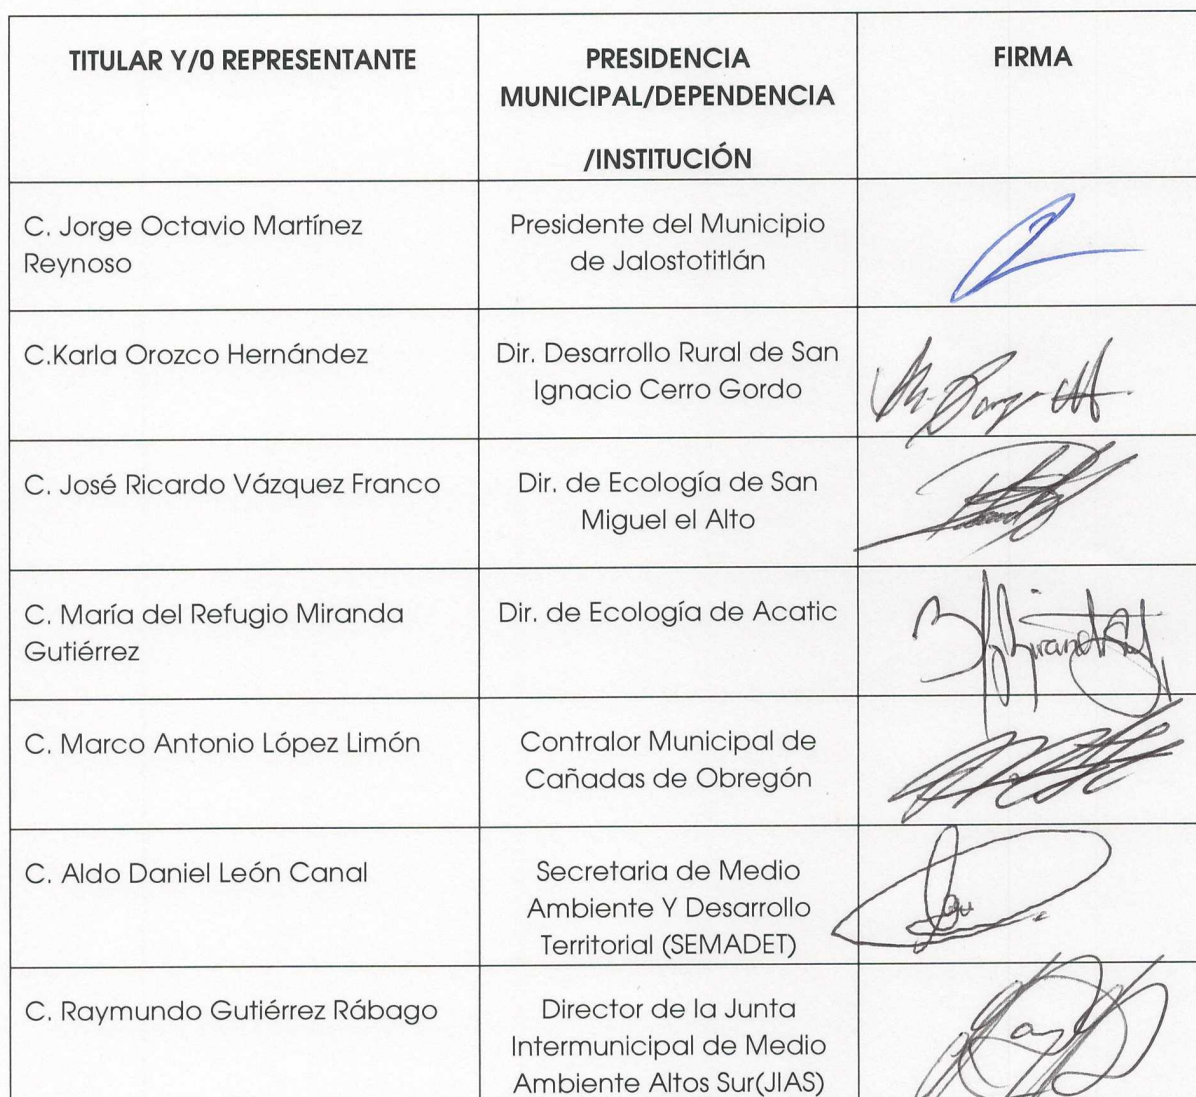 TITULAR Y/O REPRESENTANTE
PRESIDENCIA
MUNICIPAL/DEPENDENCIA
/INSTITUCIÓN
FIRMA
C. Jorge Octavio Martínez
Reynoso
Presidente del Municipio
de Jalostotitlán
C.Karla Orozco Hernández
Dir. Desarrollo Rural de San
Ignacio Cerro Gordo
C. José Ricardo Vázquez Franco
Dir. de Ecología de San
Miguel el Alto
C. María del Refugio Miranda
Gutiérrez
Dir. de Ecología de Acatic
C. Marco Antonio López Limón
Contralor Municipal de
Cañadas de Obregón
C. Aldo Daniel León Canal
Secretaria de Medio
Ambiente Y Desarrollo
Territorial (SEMADET)
C. Raymundo Gutiérrez Rábago
Director de la Junta
Intermunicipal de Medio
Ambiente Altos Sur(JIAS)